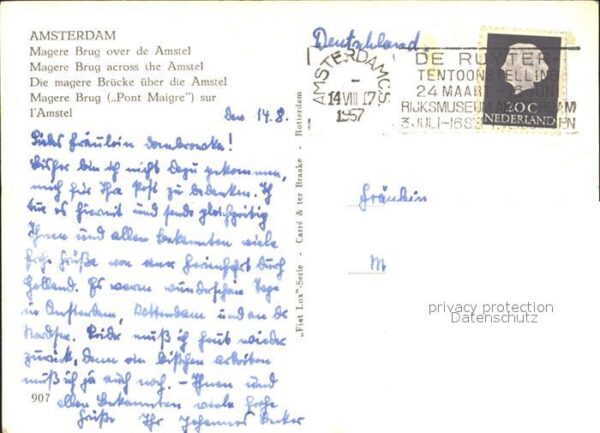 AMSTERDAM
Magere Brug over de Amstel
Magere Brug across the Amstel
Die magere Brücke über die Amstel
Magere Brug („Pont Maigre") sur
l'Amstel
Deutschland.
AMSTERDAM C.S.
14 VIII 17
1957
DE RUYTER
TENTOONSTELLING
24 MAART -
RIJKSMUSEUM
3 JULI-
20 C
NEDERLAND
den 14.8.
Liebes Fräulein
Bisher bin ich nicht dazu gekommen,
mich für Ihre Post zu bedanken. Ich
tue es hiermit und sende gleichzeitig
Ihnen und allen Bekannten viele
frohe Grüße von einer Ferienfahrt durch
Holland. Es waren wunderschöne Tage
in Amsterdam, Rotterdam und an der
Nordsee. Leider muß ich heut wieder
zurück, denn ein bißchen arbeiten
muß ich ja auch noch. - Ihnen und
allen Bekannten viele frohe
Grüße Ihr Johannes Becker
907
„Fiat Lux"-Serie - Carré & ter Braake - Rotterdam
Fräulein
M
privacy protection
Datenschutz